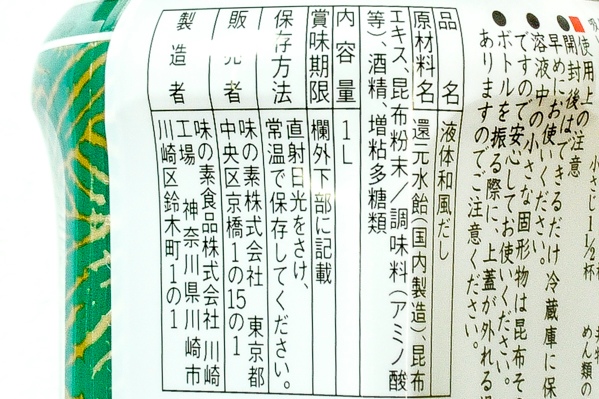 小さじ1½杯
めん類の
使用上の注意
開封後はできるだけ冷蔵庫に保
早めにお使いください。
溶液中の小さな固形物は昆布そ
ですので安心してお使いください。
ボトルを振る際に、上蓋が外れる
ありますのでご注意ください。
品名 液体和風だし
原材料名 還元水飴(国内製造)、昆布
エキス、昆布粉末/調味料(アミノ酸
等)、酒精、増粘多糖類
内容量 1L
賞味期限 欄外下部に記載
保存方法 直射日光をさけ、
常温で保存してください。
販売者 味の素株式会社 東京都
中央区京橋1の15の1
製造者 味の素食品株式会社 川崎
工場 神奈川県川崎市
川崎区鈴木町1の1